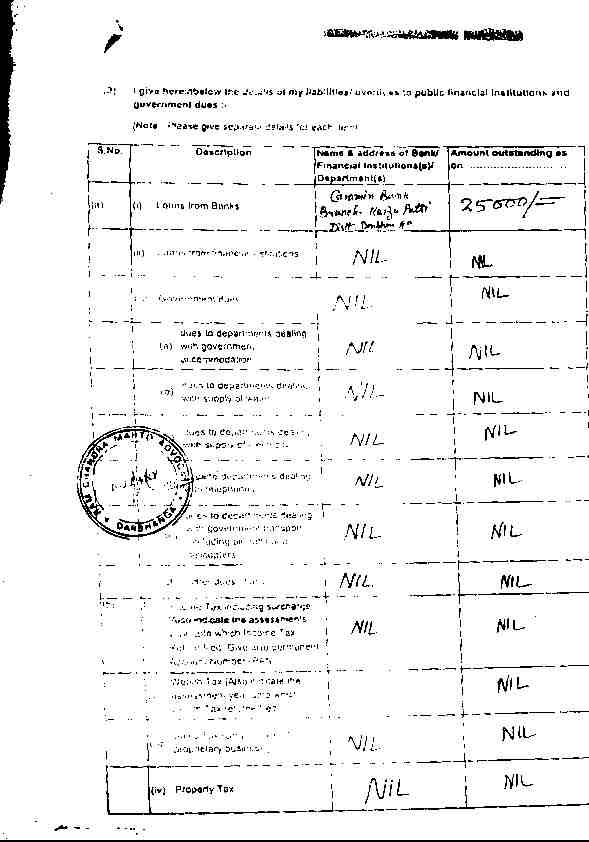 (2) I give hereinbelow the details of my liabilities/ overdues to public financial institutions and
government dues :-
(Note : Please give separate details for each item)
S.No. Description Name & address of Bank/ Amount outstanding as
Financial Institutions(s)/ on ........................
Department(s)
(a) (i) Loans from Banks Gramin Bank 25000/-
Branch
Distt
(ii) Loans from financial institutions NIL NIL
Government dues NIL NIL
dues to departments dealing
(a) with government NIL NIL
accommodation
(b) dues to departments dealing NIL NIL
with supply of water
dues to departments dealing NIL NIL
with supply of
dues to departments dealing NIL NIL
with telephones
dues to departments dealing
with government transport NIL NIL
including aircrafts and
helicopters
other dues NIL NIL
Income Tax including surcharge
(Also indicate the assessment NIL NIL
year upto which Income Tax
Return filed. Give also permanent
Account Number (PAN)
Wealth Tax (Also indicate the NIL
assessment year upto which
Wealth Tax return filed
NIL NIL
proprietary business)
(iv) Property Tax NIL NIL
RAM CHANDRA MAHTO ADVOCATE
DARBHANGA